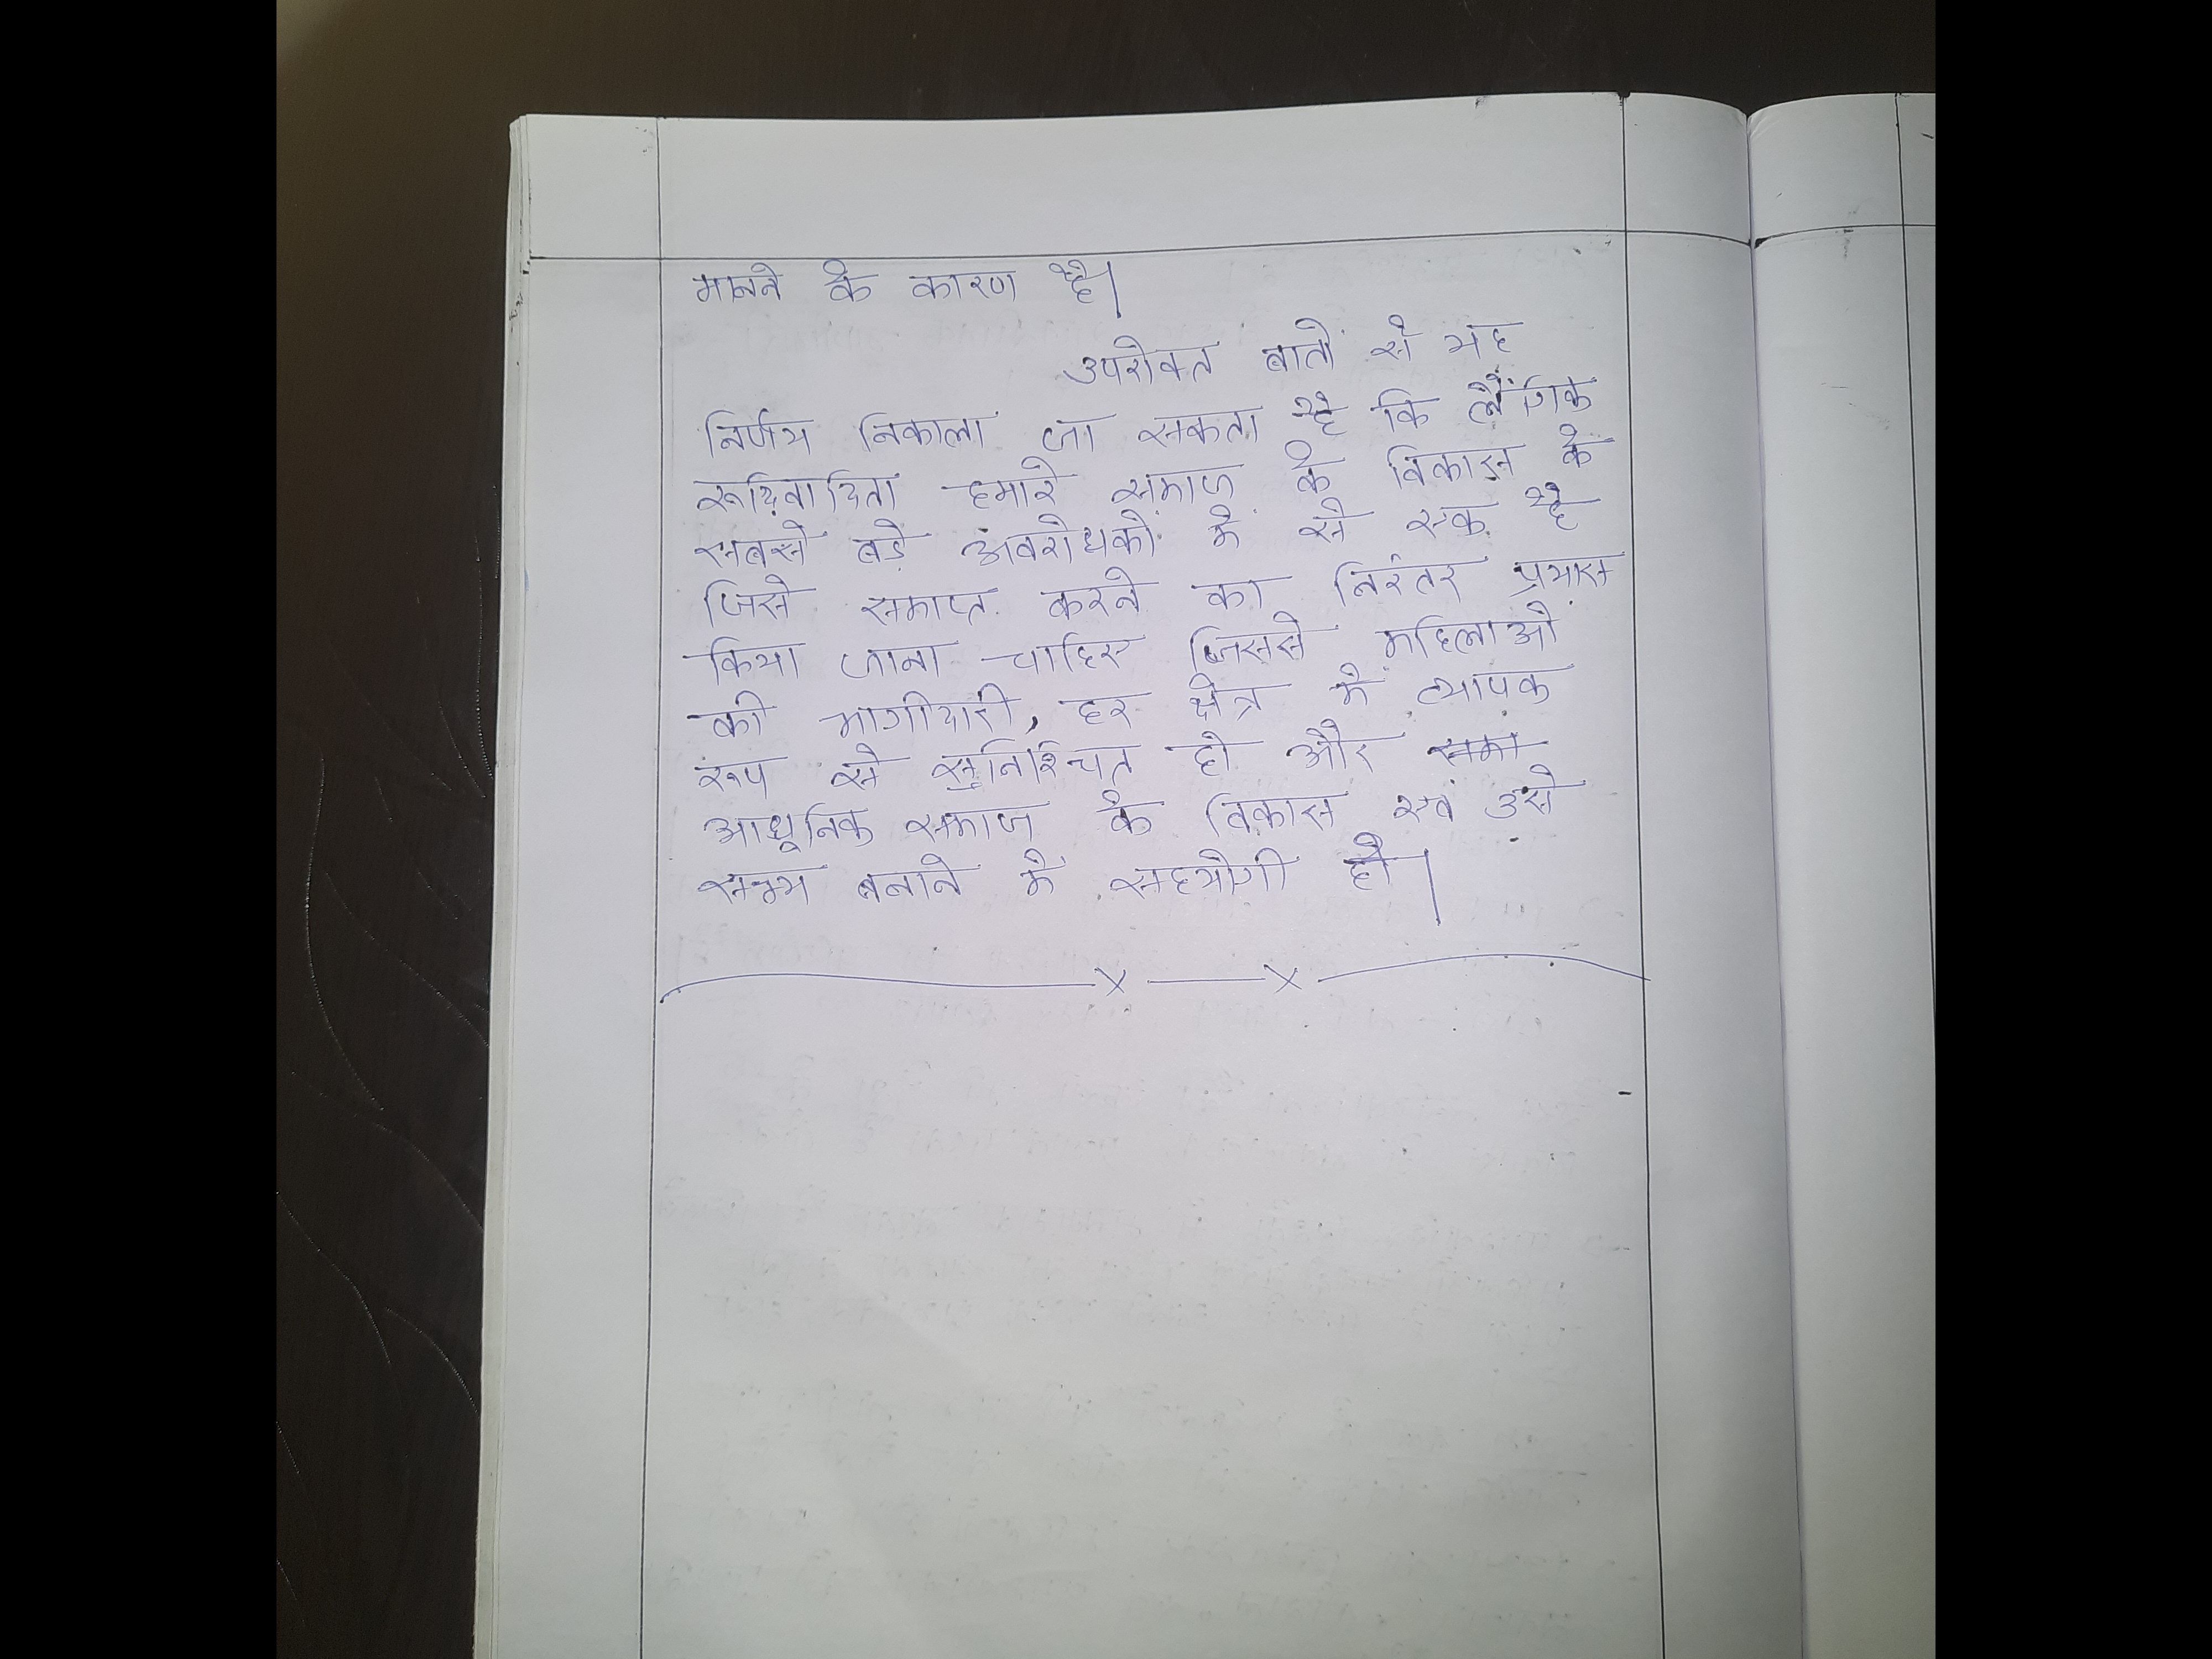 मानने के कारण है।
उपरोक्त बातों से यह
निर्णय निकाला जा सकता है कि लैंगिक
रूढ़िवादिता हमारे समाज के विकास के
सबसे बड़े अवरोधकों में से एक है
जिसे समाप्त करने का निरंतर प्रयास
किया जाना चाहिए जिससे महिलाओं
की भागीदारी, हर क्षेत्र में व्यापक
रूप से सुनिश्चित हो और समा
आधुनिक समाज के विकास एवं उसे
सभ्य बनाने में सहयोगी हो।
x x